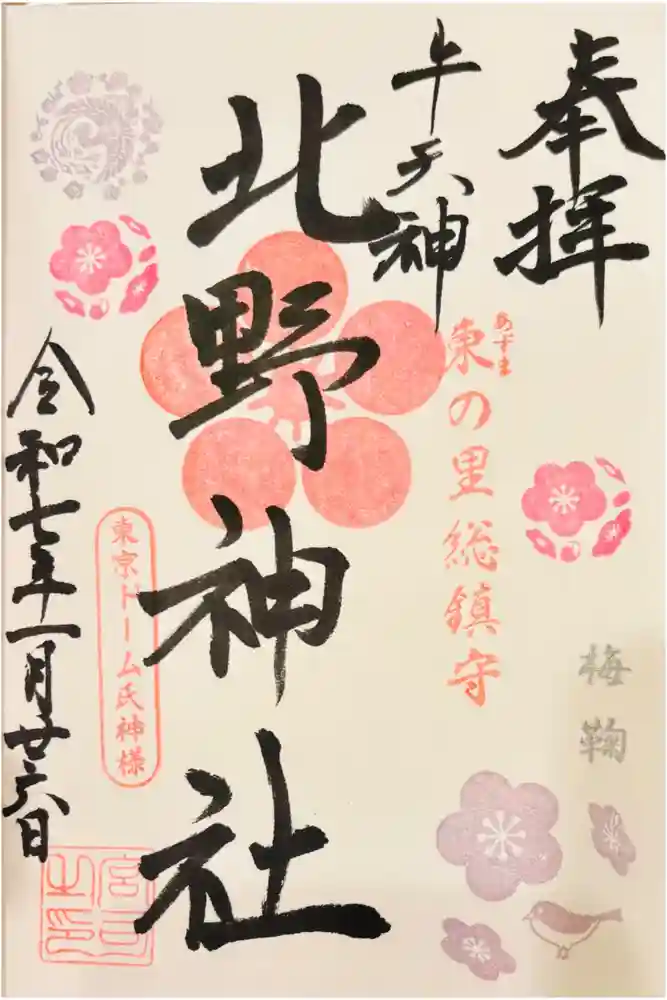 奉拝
牛天神
北野神社
あずま
東の里総鎮守
梅鞠
東京ドーム氏神様
令和七年十一月廿六日
宮司之印